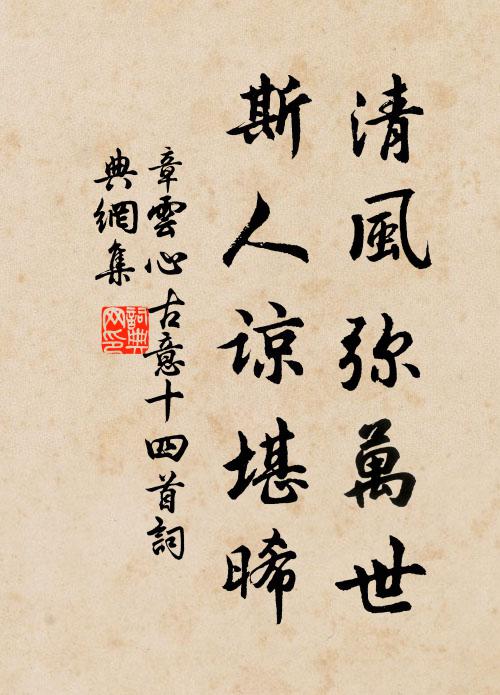 清風弥萬世
斯人谅堪晞
章雲心古意十四首詞
典網集
詞典
网印